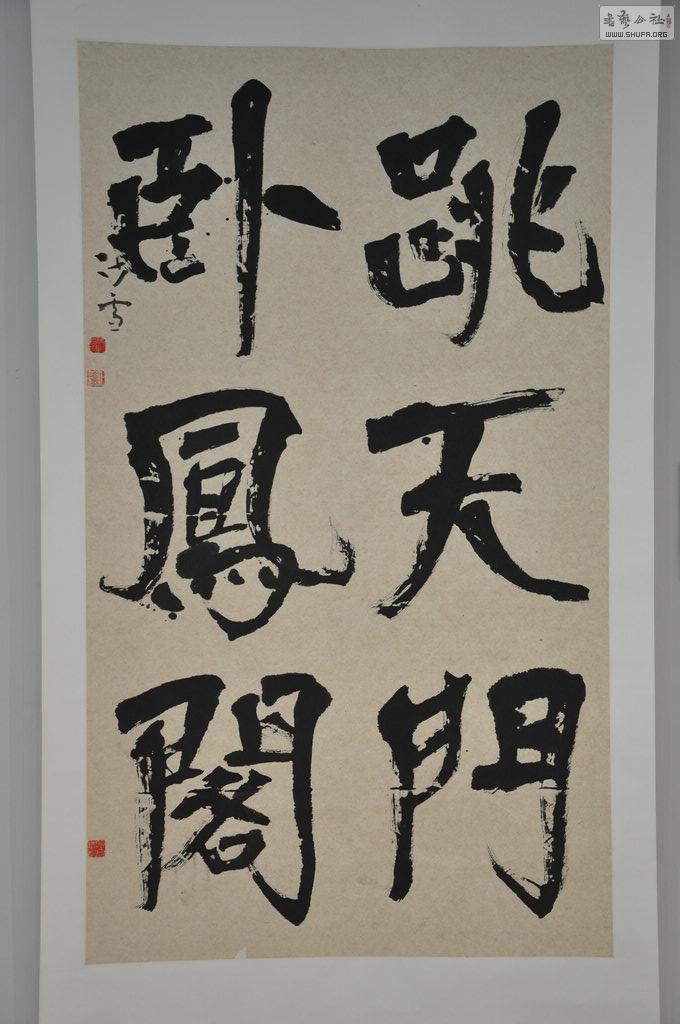 跳天門
卧鳳閣
沙雪
書藝公社
WWW.SHUFA.ORG